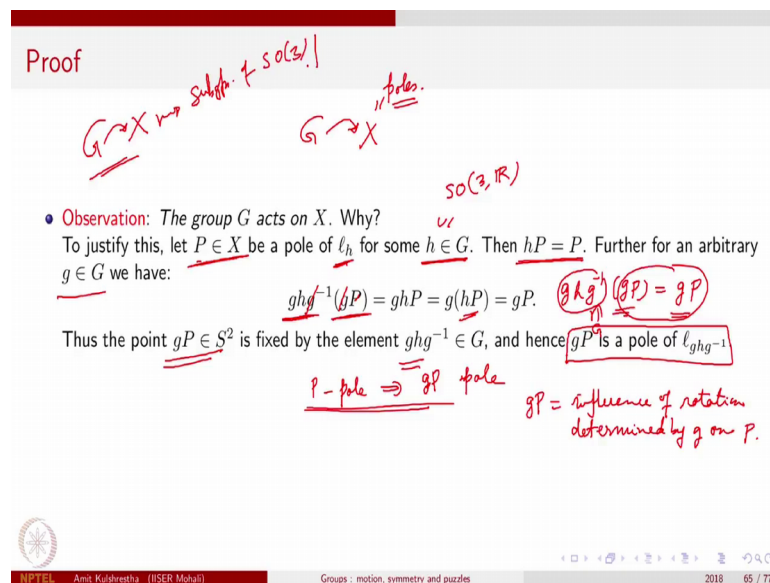 Proof
G ↷ X ⇝ subgp. of SO(3)!
poles.
G ↷ X
SO(3, ℝ)
• Observation: The group G acts on X. Why?
To justify this, let P ∈ X be a pole of ℓ_h for some h ∈ G. Then hP = P. Further for an arbitrary
g ∈ G we have:
ghg⁻¹(gP) = ghP = g(hP) = gP. (ghg⁻¹)(gP) = gP
Thus the point gP ∈ S² is fixed by the element ghg⁻¹ ∈ G, and hence gP is a pole of ℓ_{ghg⁻¹}.
P - pole ⇒ gP pole
gP = influence of rotation
determined by g on P.
NPTEL Amit Kulshrestha (IISER Mohali) Groups : motion, symmetry and puzzles 2018 65 / 7